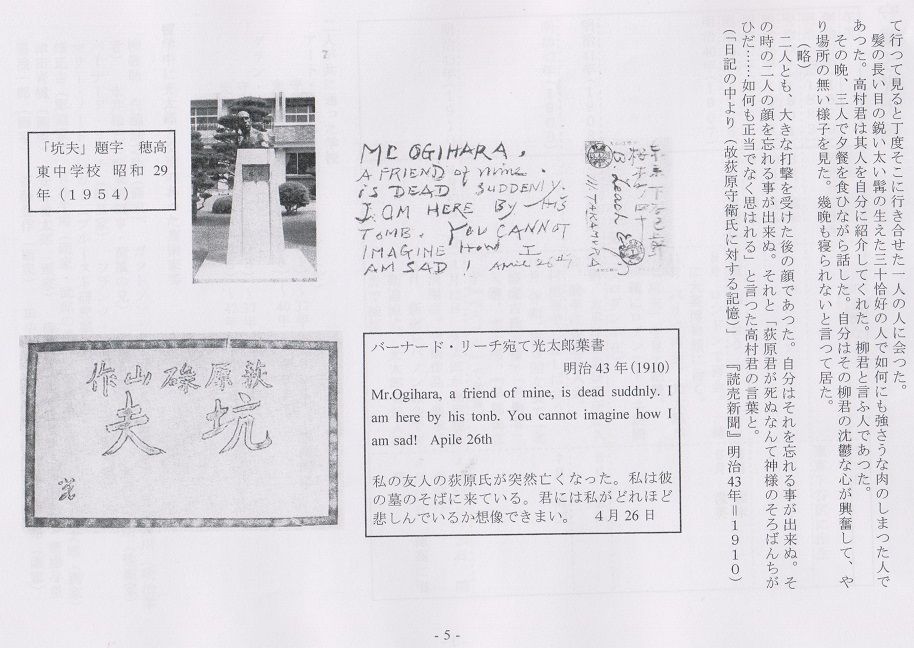 て行つて見ると丁度そこに行き合せた一人の人に会った。
髪の長い目の鋭い太い髯の生えた三十恰好の人で如何にも強さうな肉のしまつた人で
あつた。高村君は其人を自分に紹介してくれた。柳君と言ふ人であつた。
その晩、三人で夕餐を食ひながら話した。自分はその柳君の沈鬱な心が興奮して、や
り場所の無い様子を見た。幾晩も寝られないと言つて居た。
（略）
二人とも、大きな打撃を受けた後の顔であつた。自分はそれを忘れる事が出来ぬ。そ
の時の二人の顔を忘れる事が出来ぬ。それと「荻原君が死ぬなんて神様のそろばんちが
ひだ……如何も正当でなく思はれる」と言つた高村君の言葉と。
（「日記の中より（故荻原守衛氏に対する記憶）」『読売新聞』明治43年＝1910）
MC OGIHARA,
A FRIEND of mine.
iS DEAD SUDDENLY.
I OM HERE BY HiS
TOMB. YOU CANNOT
IMAGINE HOW I
AM SAD! APRiL 26th
B Leach Esqr
TAKAMURA
「坑夫」題字 穂高
東中学校 昭和 29
年（1954）
荻原碌山作
坑夫
バーナード・リーチ宛て光太郎葉書
明治 43 年(1910)
Mr.Ogihara, a friend of mine, is dead suddnly. I
am here by his tonb. You cannot imagine how I
am sad! Apile 26th
私の友人の荻原氏が突然亡くなった。私は彼
の墓のそばに来ている。君には私がどれほど
悲しんでいるか想像できまい。 4月26日
- 5 -